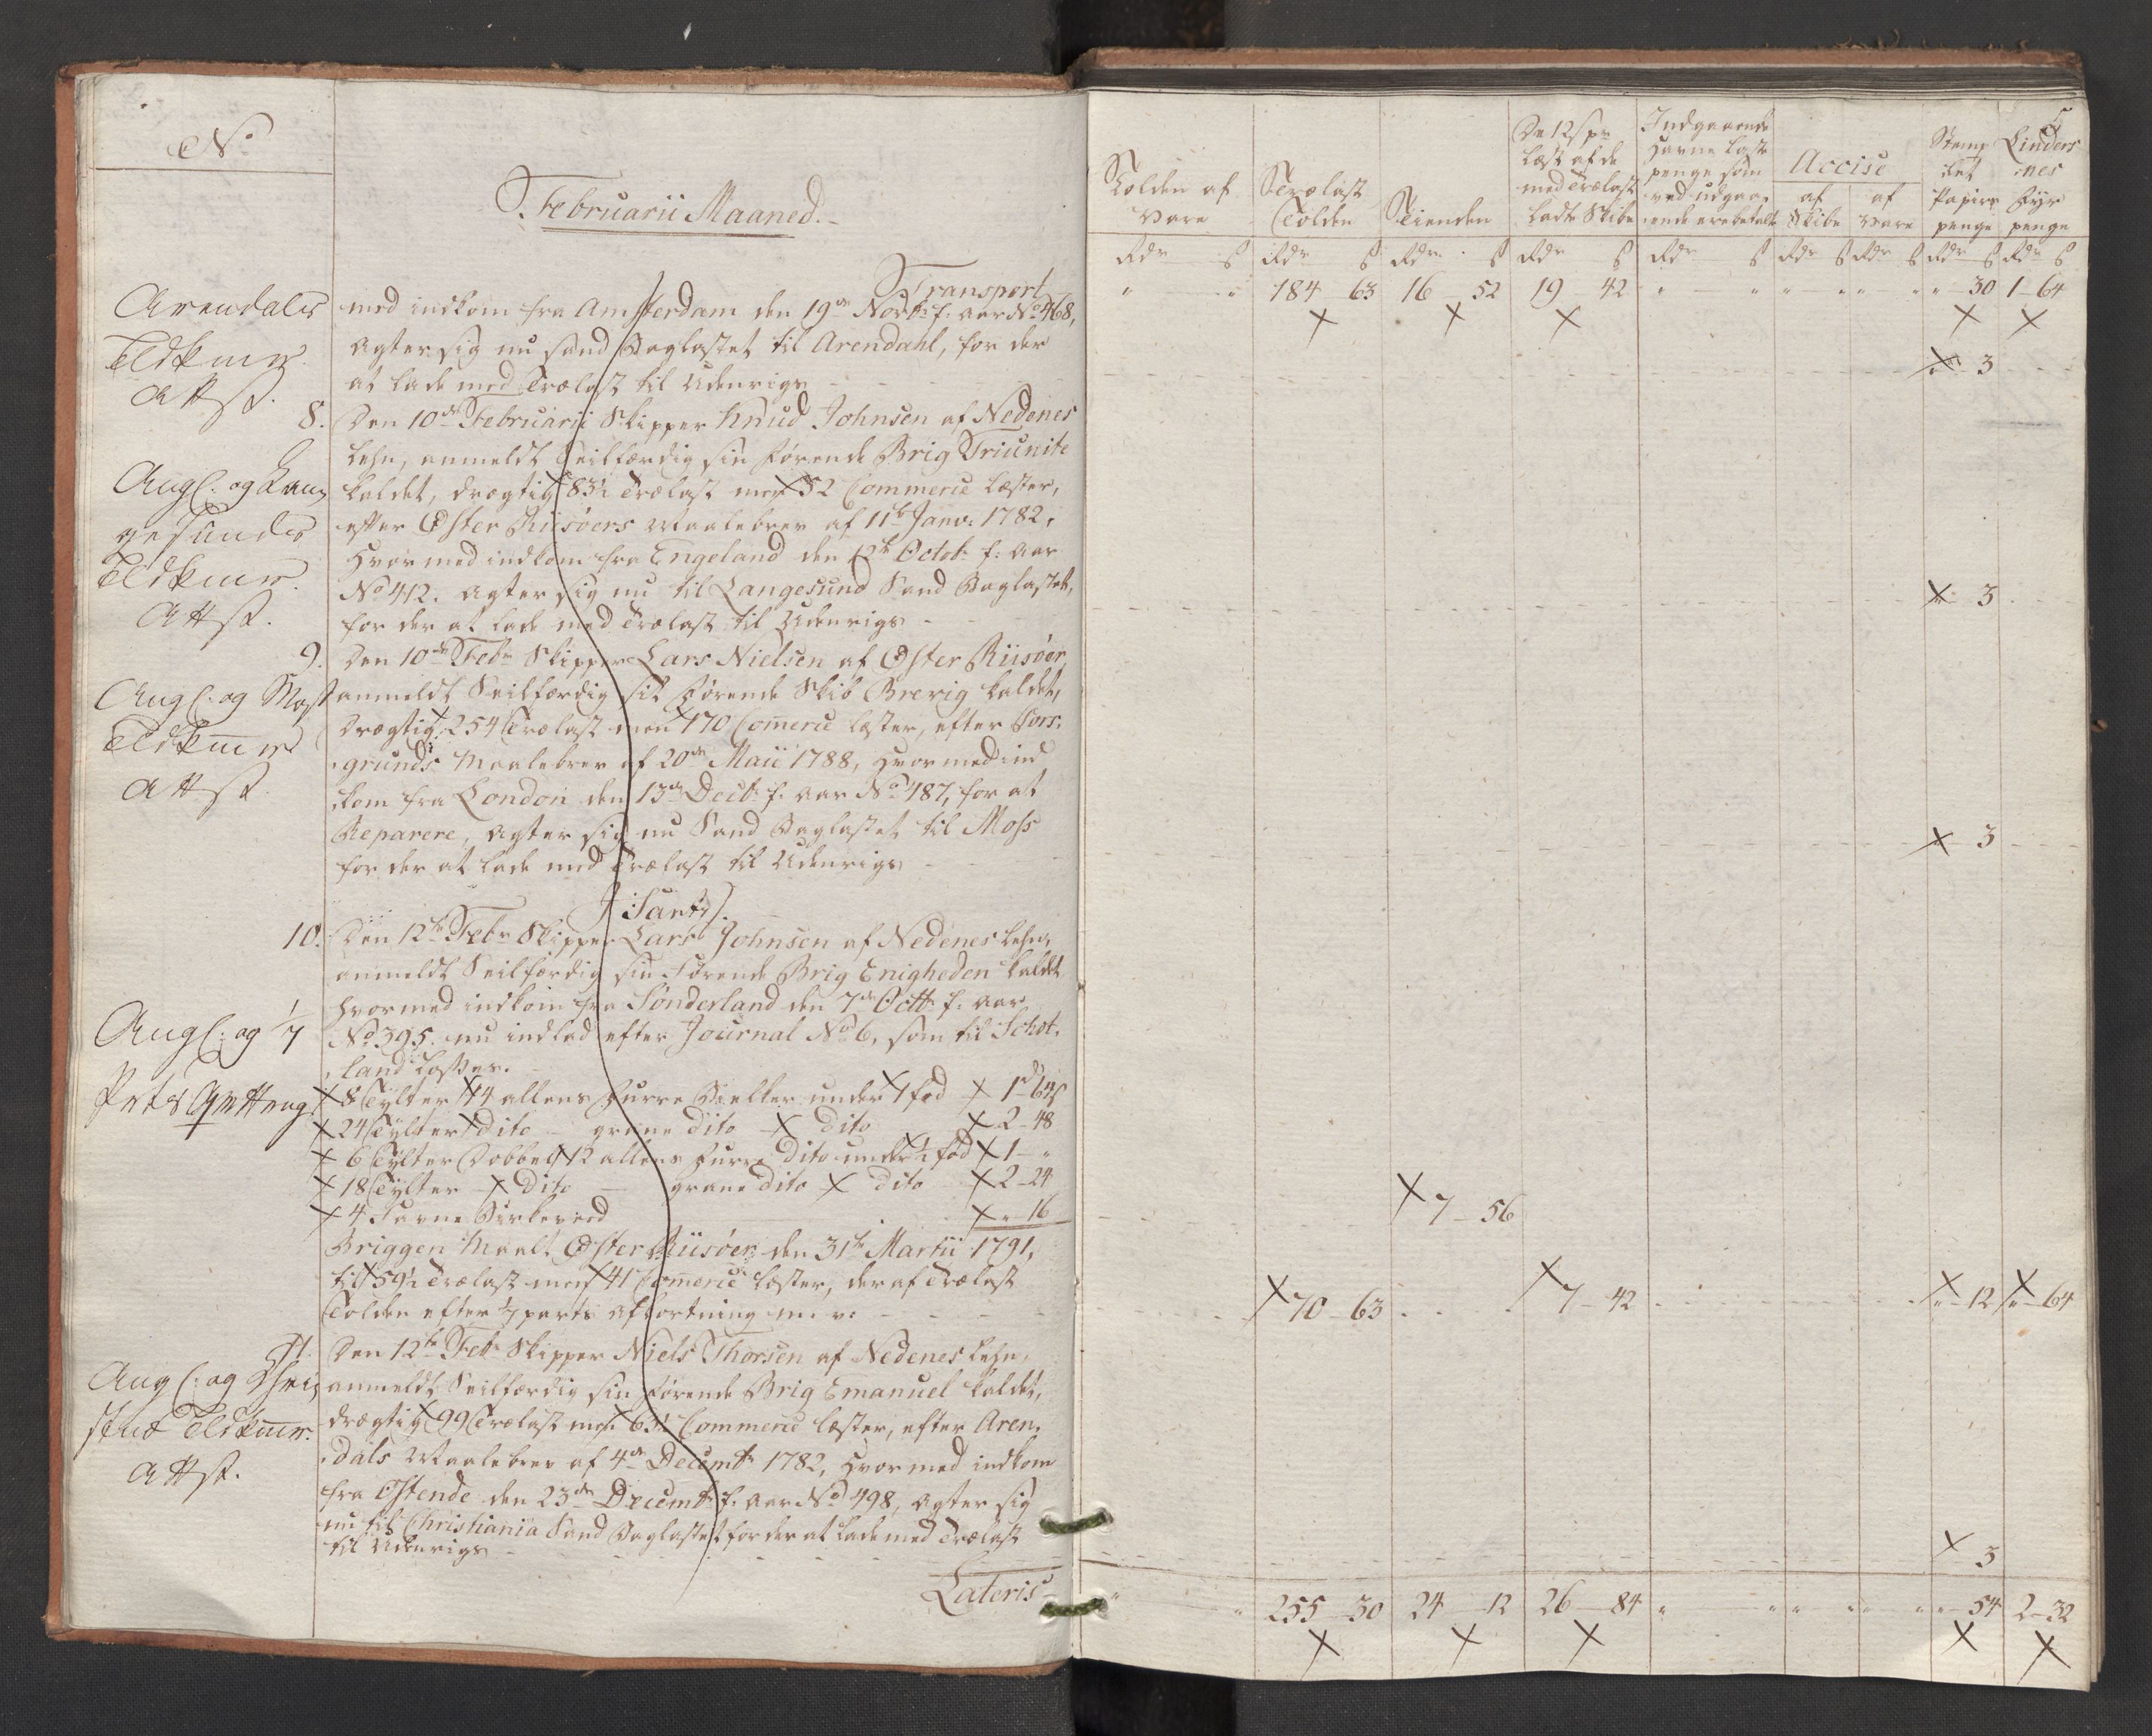 No
Februarii Maaned.
Transport
Arendals
Toldkmrs
Attst.
med indkom fra Amsterdam den 19de Novbr f: aar No 468,
agter sig nu sand Baglastet til Arendahl, for der
at lade med Trælast til Udenrigs
8. Den 10de Februarii Skipper Knud Johnsen af Nedenes
Lehn, anmeldt Seilfærdig sin førende Brig Triunite
Angl: og Lan,
gesunds
Toldkmrs.
Attst.
kaldet, drægtig 83½ Trælast men 52 Commerce læster,
efter Øster Riisøers Maalebrev af 11te Janv: 1782,
hvormed indkom fra Engeland den 12te Octob: f: aar
No 412. agter sig nu til Langesund Sand Baglastet,
for der at lade med Trælast til Udenrigs
9. Den 10de Febr Skipper Lars Nielsen af Øster Riisøer
Angl: og Moss
Toldkmrs
Attst.
anmeldt Seilfærdig sit førende Skib Brevig kaldet,
drægtig 254 Trælast men 170 Comerce læster, efter Pors,
grunds Maalebrev af 20de Maii 1788, hvormed ind
kom fra London den 13de Decbr f: aar No 487, for at
Reparere, agter sig nu Sand Baglastet til Moss
for der at lade med Trælast til Udenrigs
/Sartz/.
10. Den 12te Febr Skipper Lars Johnsen af Nedenes Lehn,
anmeldt Seilfærdig sin Førende Brig Enigheden kaldet
hvormed indkom fra Sønderland den 7de Octbr f: aar
Angl: og 1/7
Parts
No 395. nu indlad efter Journal No 6, som til Schot,
land Losses.
8 Tylter 14 allens Furre Bielker under 1 fod 1rd 64s
24 Tylter dito grane dito dito 2-48
6 Tylter Dobbelt 12 allens Furre dito under ½ fod 1-"
18 Tylter dito grane dito dito 2-24
4 Favne Birkeved "-16
Briggen Maalt Øster Riisøer den 31te Martii 1791,
til 59½ Trælast men 41 Comerce læster, der af Trælast
Tolden efter 1/7 parts afkortning m: v:
11. Den 12te Febr Skipper Niels Thorsen af Nedenes Lehn,
Angl: og Chri,
Toldkmrs.
Attst.
anmeldt Seilfærdig sin førende Brig Emanuel kaldet,
drægtig 99 Trælast men 63½ Commerce læster, efter Aren,
dals Maalebrev af 4de Decembr 1782, hvormed indkom
fra Ostende den 23de Decembr f: aar No 498, agter sig
nu til Christiania Sand Baglastet for der at lade med Trælast
til Udenrigs
Lateris
5
Tolden af Vare
Trælast Tolden
Tienden
De 12 s pr Læst af de med Trælast Ladte Skibe
Indgaaende Havne Laste penge som ved udgaa, ende ere betalte
Accise
af Skibe
af Vare
Stemp let Papirs penge
Linders nes Fyr penge
Rdr s Rdr s Rdr s Rdr s Rdr s Rdr s Rdr s Rdr s Rdr s
" " 184 63 16 52 19 42 " " " " " " " 30 1-64
" 3
" 3
" 3
7-56
70-63 7-42 "-12 "-64
3
" " 255-30 24-12 26-84 " " " " " " "-54 2-32